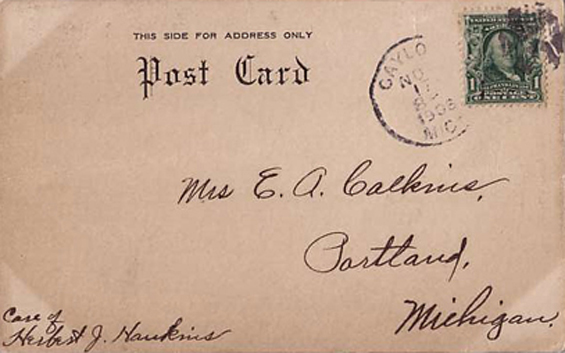 THIS SIDE FOR ADDRESS ONLY
Post Card
GAYLO
NO
1908
MIC
1 1
Mrs E. A. Calkins,
Portland,
Michigan.
Care of
Herbert J. Hawkins